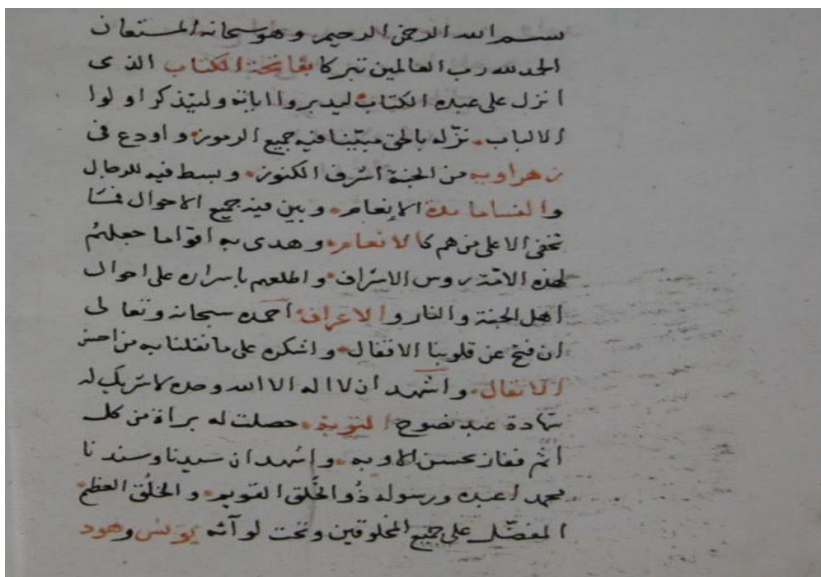 بسم الله الرحمن الرحيم وهو سبحانه المستعان
الحمد لله رب العالمين تبركا بفاتحة الكتاب الذى
انزل على عبده الكتاب ليدبروا اياته وليتذكر اولوا
الالباب نزله بالحق مبينا فيه جميع الرموز واودع فى
زهراويه من الجنة اشرف الكنوز وبسط فيه للرجال
والنسا مائدة الإنعام وبين فيه جميع الاحوال فما
تخفى الا على من هم كالانعام وهدى به اقواما جعلهم
لهذه الامة روس الاشراف واطلعهم باسراره على احوال
اهل الجنة والنار والاعراف احمده سبحانه وتعالى
ان فتح عن قلوبنا الاقفال واشكره على ما نفلنا به من احسن
الانفال واشهد ان لا اله الا الله وحده لا شريك له
شهادة عبد نصوح التوبة حصلت له براة من كل
اثم ففاز بحسن الاوبه واشهد ان سيدنا وسندنا
محمدا عبده ورسوله ذُو الخَلق القويم والخُلق العظيم
المفضّل على جميع المخلوقين وتحت لوآئه يونس وهود